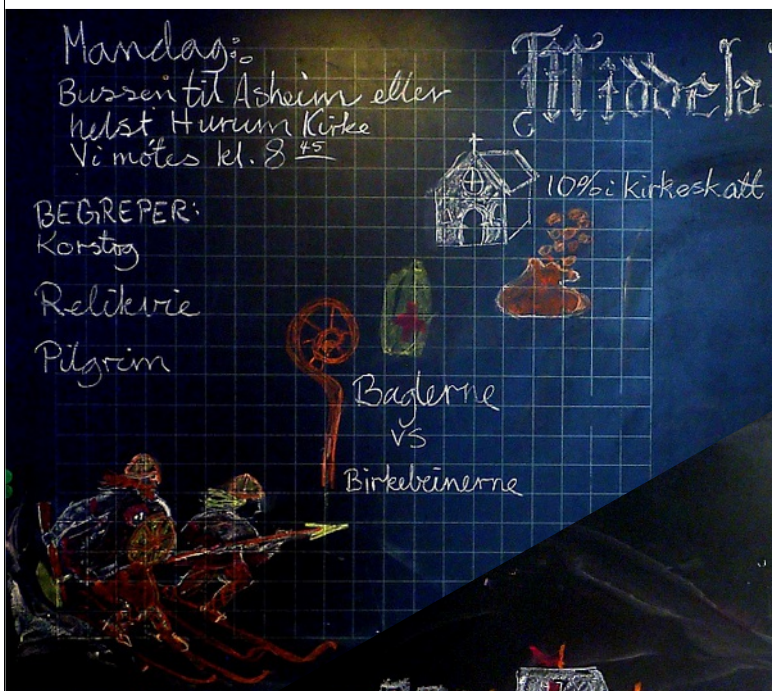 Mandag:
Bussen til Åsheim eller
helst Hurum Kirke
Vi møtes kl. 8 45
Middela
10% i kirkeskatt
BEGREPER:
Korstog
Relikvie
Pilgrim
Baglerne
vs
Birkebeinerne